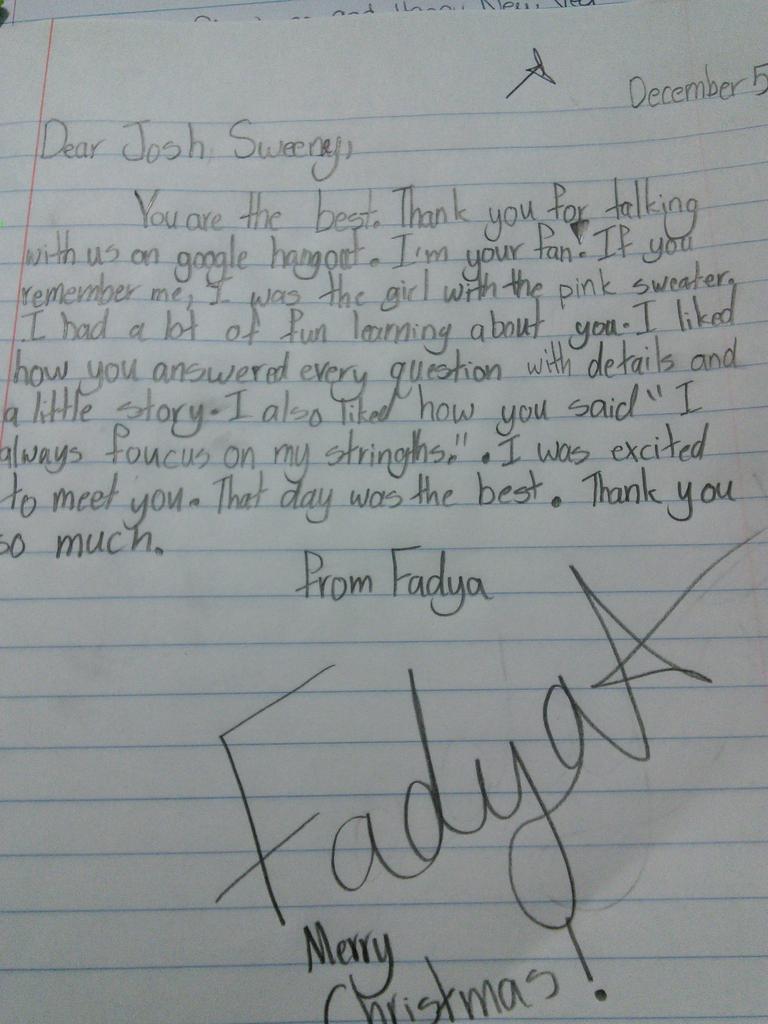 and Happy New Year
December 5
Dear Josh Sweeney,
You are the best. Thank you for talking
with us on google hangout. I'm your fan! If you
remember me, I was the girl with the pink sweater.
I had a lot of fun learning about you. I liked
how you answered every question with details and
a little story. I also liked how you said "I
always foucus on my stringths.". I was excited
to meet you. That day was the best. Thank you
so much.
from Fadya
Fadya
Merry
Christmas!